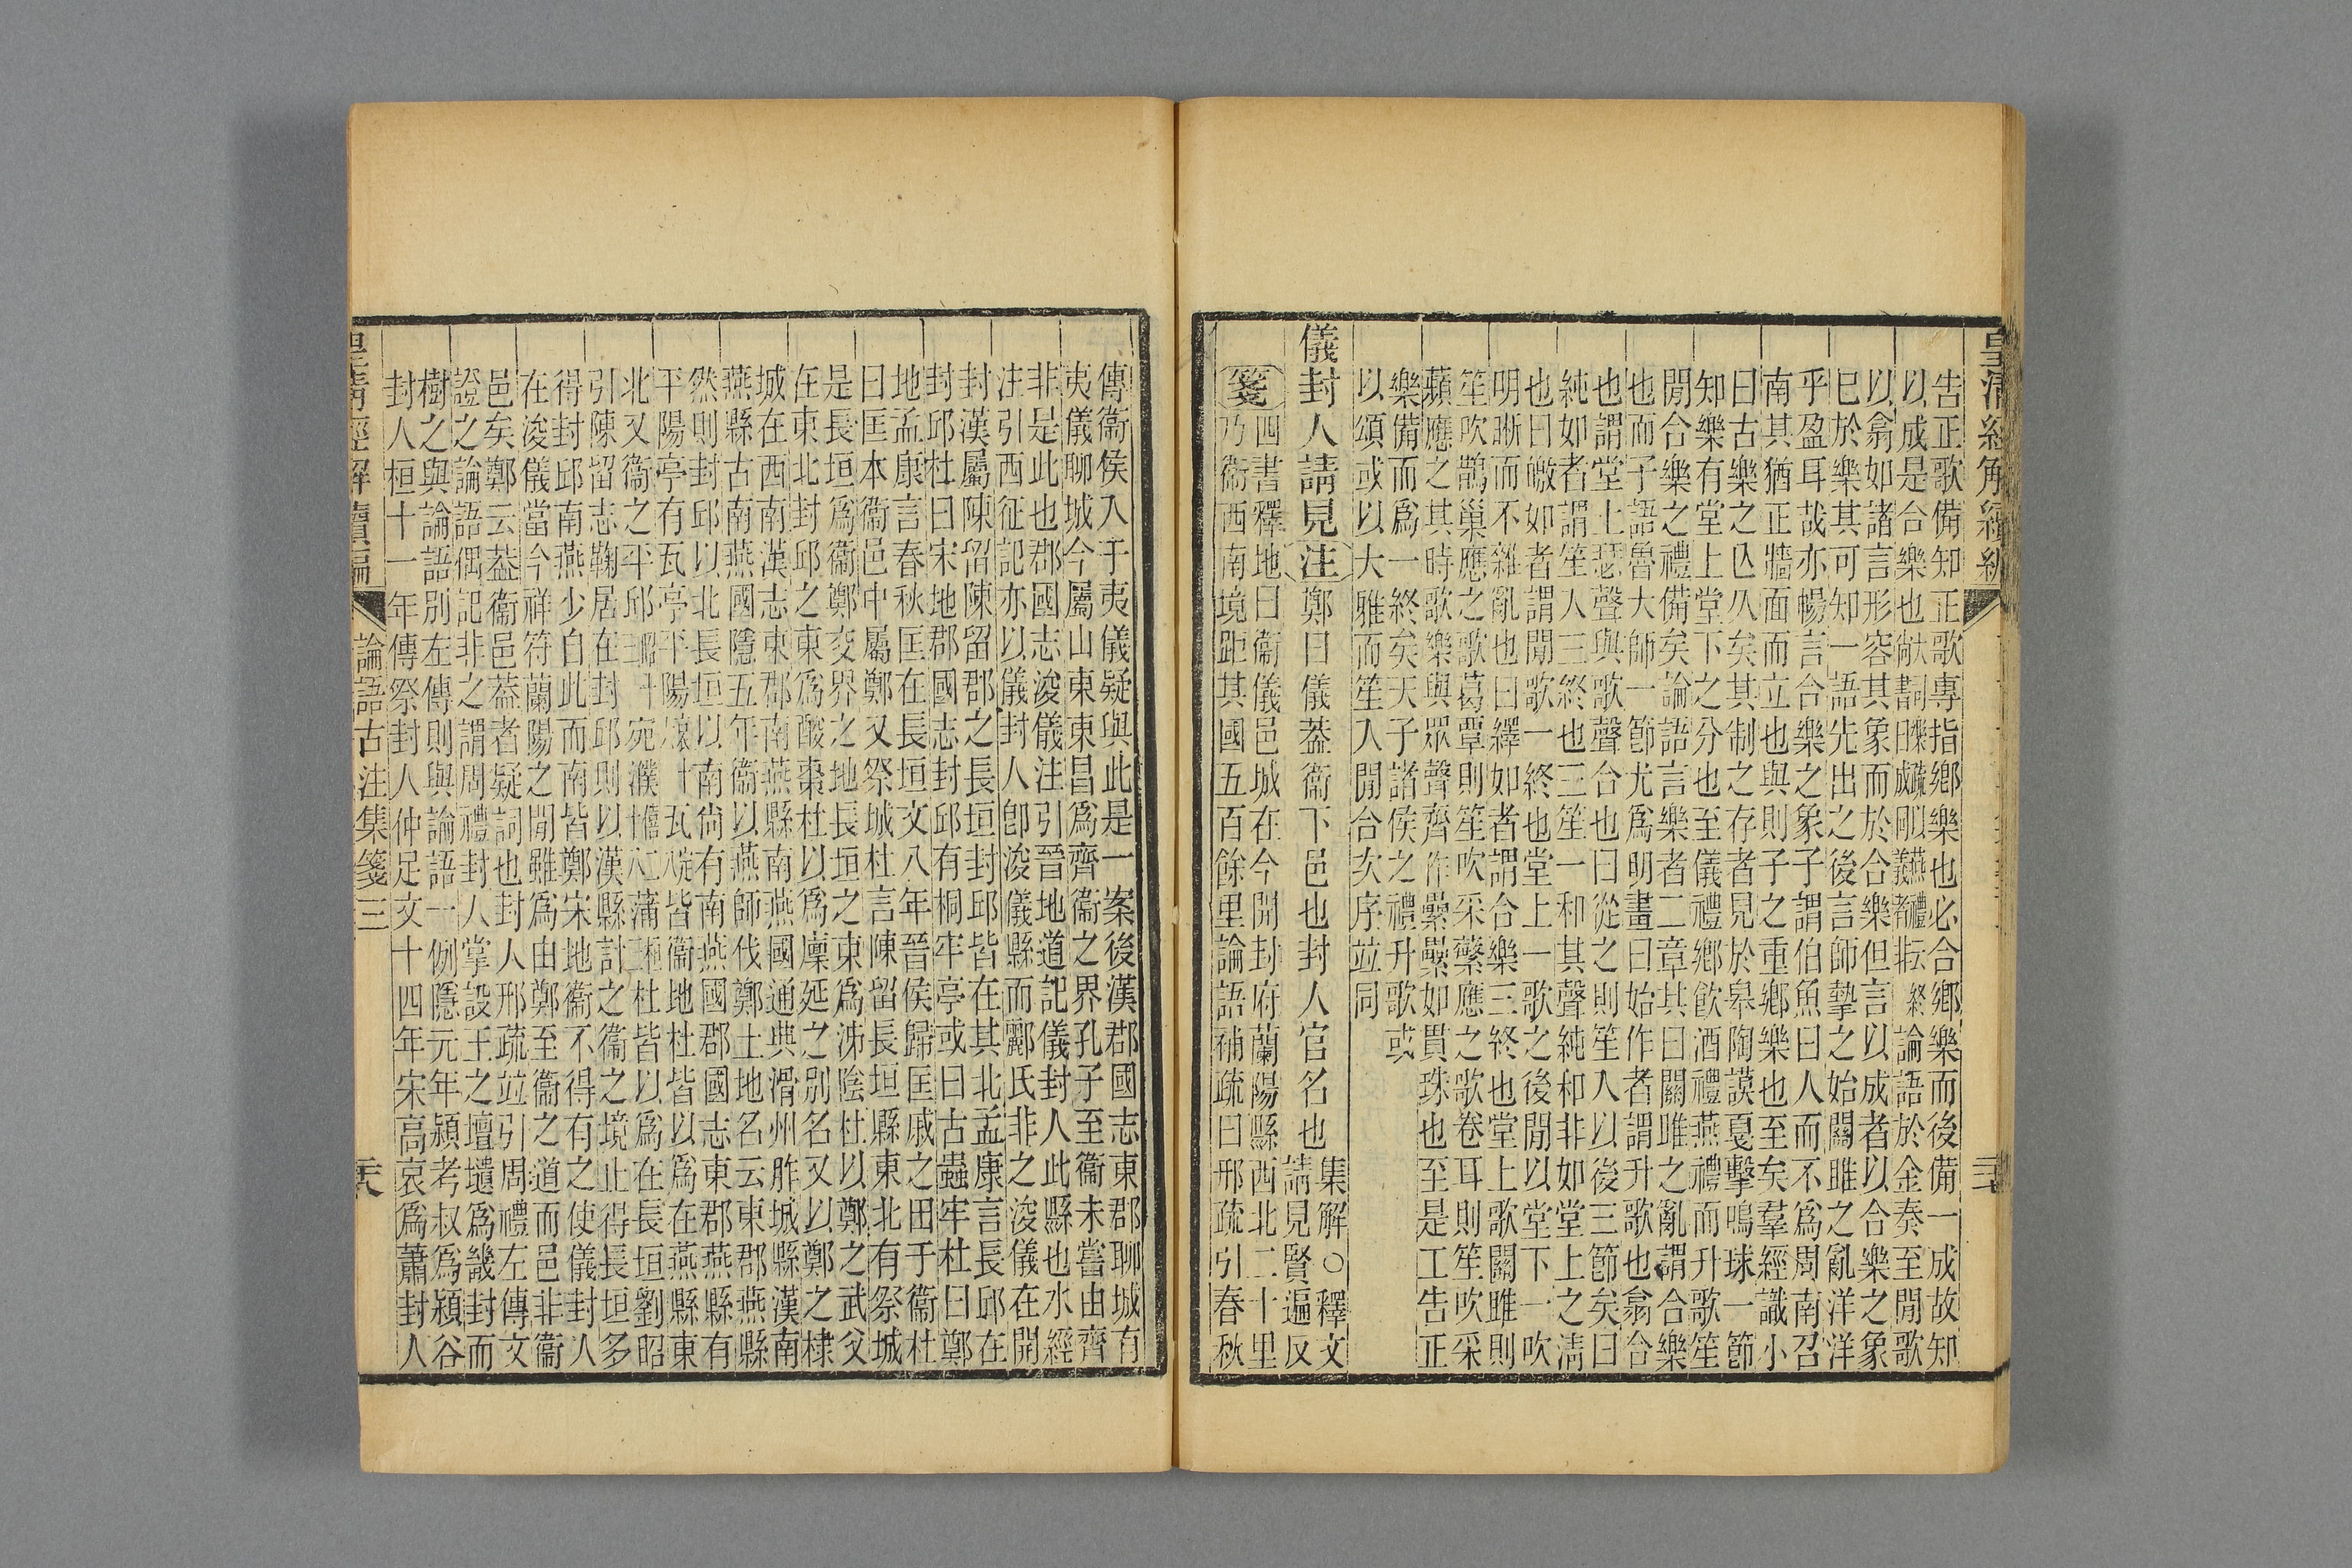 皇清經解續編
告正歌備知正歌專指鄉樂也必合鄉樂而後備一成故知
以成是合樂也論語於金奏至閒歌
以翕如諸言形容其象而於合樂但言以成者以合樂之象
已於樂其可知一語先出之後言師摯之始關雎之亂洋洋
乎盈耳哉亦暢言合樂之象子謂伯魚曰人而不爲周南召
南其猶正牆面而立也與則子之重鄉樂也至矣羣經識小
曰古樂之亾久矣其制之存者見於皋陶謨戛擊鳴球一節
知樂有堂上堂下之分也至儀禮鄉飲酒禮燕禮而升歌笙
閒合樂之禮備矣論語言樂者二章其曰關雎之亂謂合樂
也而子語魯大師一節尤爲明畫曰始作者謂升歌也翕合
也謂堂上瑟聲與歌聲合也曰從之則笙入以後三節矣曰
純如者謂笙入三終也三笙一和其聲純和非如堂上之淸
也曰皦如者謂閒歌一終也堂上一歌之後閒以堂下一吹
明晰而不雜亂也曰繹如者謂合樂三終也堂上歌關雎則
笙吹鵲巢應之歌葛覃則笙吹采蘩應之歌卷耳則笙吹采
蘋應之其時歌樂與眾聲齊作纍纍如貫珠也至是工告正
樂備而爲一終矣天子諸侯之禮升歌或
以頌或以大雅而笙入閒合次序並同
儀封人請見注鄭曰儀葢衞下邑也封人官名也集解○釋文
請見賢遍反
箋四書釋地曰衞儀邑城在今開封府蘭陽縣西北二十里
乃衞西南境距其國五百餘里論語補疏曰邢疏引春秋
傳衞侯入于夷儀疑與此是一案後漢郡國志東郡聊城有
夷儀聊城今屬山東東昌爲齊衞之界孔子至衞未嘗由齊
非是此也郡國志浚儀注引晉地道記儀封人此縣也水經
注引西征記亦以儀封人卽浚儀縣而酈氏非之浚儀在開
封漢屬陳留陳留郡之長垣封邱皆在其北孟康言長邱在
封邱杜曰宋地郡國志封邱有桐牢亭或曰古蟲牢杜曰鄭
地孟康言春秋匡在長垣文八年晉侯歸匡戚之田于衞杜
曰匡本衞邑中屬鄭又祭城杜言陳留長垣縣東北有祭城
是長垣爲衞鄭交界之地長垣之東爲泲陰杜以鄭之武父
在東北封邱之東爲酸棗杜以爲廩延之別名又以鄭之棣
城在西南漢志東郡南燕縣南燕國通典滑州胙城縣漢南
燕縣古南燕國隱五年衞以燕師伐鄭土地名云東郡燕縣
然則封邱以北長垣以南尙有南燕國郡國志東郡燕縣有
平陽亭有瓦亭平陽瓦皆衞地杜皆以爲在燕縣東
北又衞之平邱宛濮蒲杜皆以爲在長垣劉昭
引陳留志鞠居在封邱則以漢縣計之衞之境止得長垣多
得封邱南燕少自此而南皆鄭宋地衞不得有之使儀封人
在浚儀當今祥符蘭陽之閒雖爲由鄭至衞之道而邑非衞
邑矣鄭云葢衞邑葢者疑詞也封人邢疏並引周禮左傳文
證之論語偶記非之謂周禮封人掌設王之壇壝爲畿封而
樹之與論語別左傳則與論語一例隱元年潁考叔爲潁谷
封人桓十一年傳祭封人仲足文十四年宋高哀爲蕭封人
皇淸經解續編　論語古注集箋三